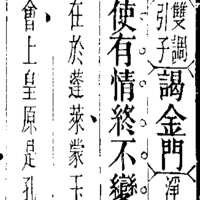 雙調
引子
謁金門
淨
使有情終不變
在於蓬萊蒙玉
會上皇原是孔